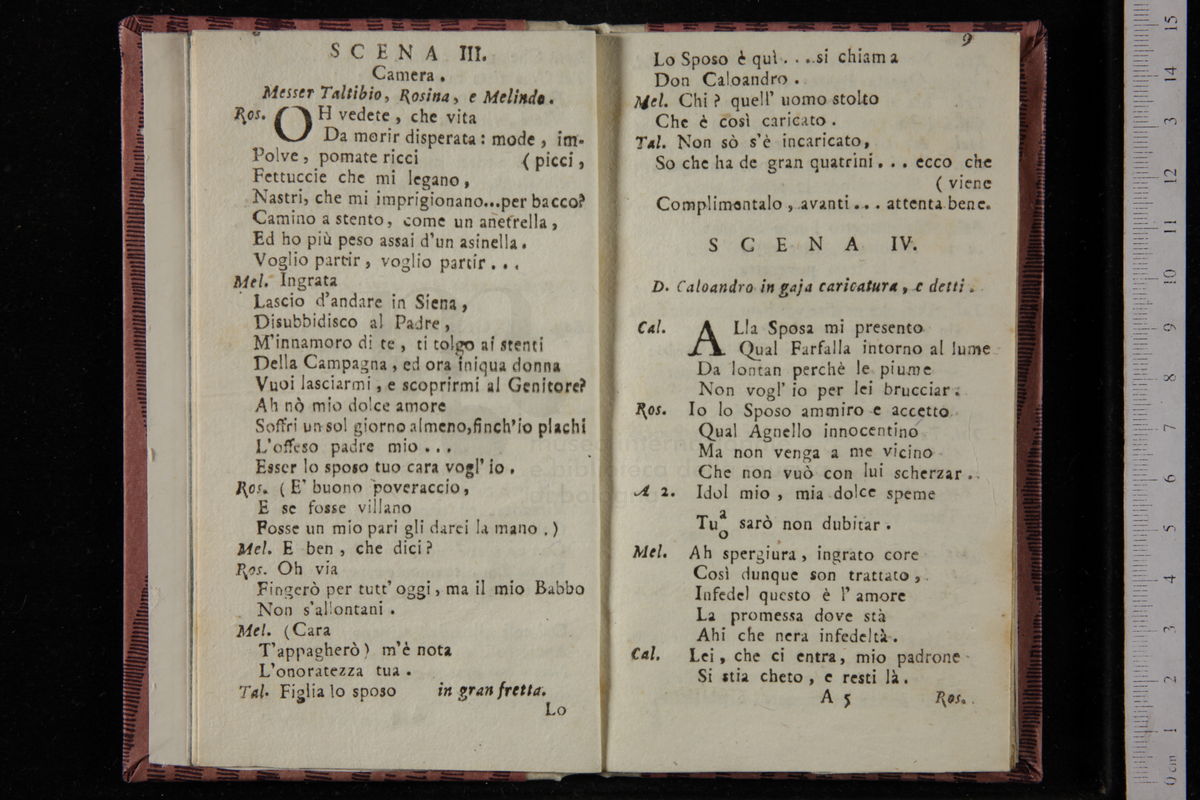 SCENA III.
Camera.
Messer Taltibio, Rosina, e Melindo.
Ros. OH vedete, che vita
Da morir disperata: mode, im-
Polve, pomate ricci (picci,
Fettuccie che mi legano,
Nastri, che mi imprigionano...per bacco?
Camino a stento, come un anetrella,
Ed ho più peso assai d'un asinella.
Voglio partir, voglio partir...
Mel. Ingrata
Lascio d'andare in Siena,
Disubbidisco al Padre,
M'innamoro di te, ti tolgo ai stenti
Della Campagna, ed ora iniqua donna
Vuoi lasciarmi, e scoprirmi al Genitore?
Ah nò mio dolce amore
Soffri un sol giorno almeno, finch'io plachi
L'offeso padre mio...
Esser lo sposo tuo cara vogl' io.
Ros. (E' buono poveraccio,
E se fosse villano
Fosse un mio pari gli darei la mano.)
Mel. E ben, che dici?
Ros. Oh via
Fingerò per tutt' oggi, ma il mio Babbo
Non s'allontani.
Mel. (Cara
T'appagherò) m'è nota
L'onoratezza tua.
Tal. Figlia lo sposo in gran fretta.
Lo
9
Lo Sposo è quì....si chiama
Don Caloandro.
Mel. Chi? quell' uomo stolto
Che è così caricato.
Tal. Non sò s'è incaricato,
So che ha de gran quatrini... ecco che
(viene
Complimentalo, avanti... attenta bene.
SCENA IV.
D. Caloandro in gaja caricatura, e detti.
Cal. ALla Sposa mi presento
Qual Farfalla intorno al lume
Da lontan perchè le piume
Non vogl' io per lei brucciar.
Ros. Io lo Sposo ammiro e accetto
Qual Agnello innocentino
Ma non venga a me vicino
Che non vuò con lui scherzar.
A 2. Idol mio, mia dolce speme
a
Tu sarò non dubitar.
o
Mel. Ah spergiura, ingrato core
Così dunque son trattato,
Infedel questo è l' amore
La promessa dove stà
Ahi che nera infedeltà.
Cal. Lei, che ci entra, mio padrone
Si stia cheto, e resti là.
A 5 Ros.
0 cm 1 2 3 4 5 6 7 8 9 10 11 12 13 14 15